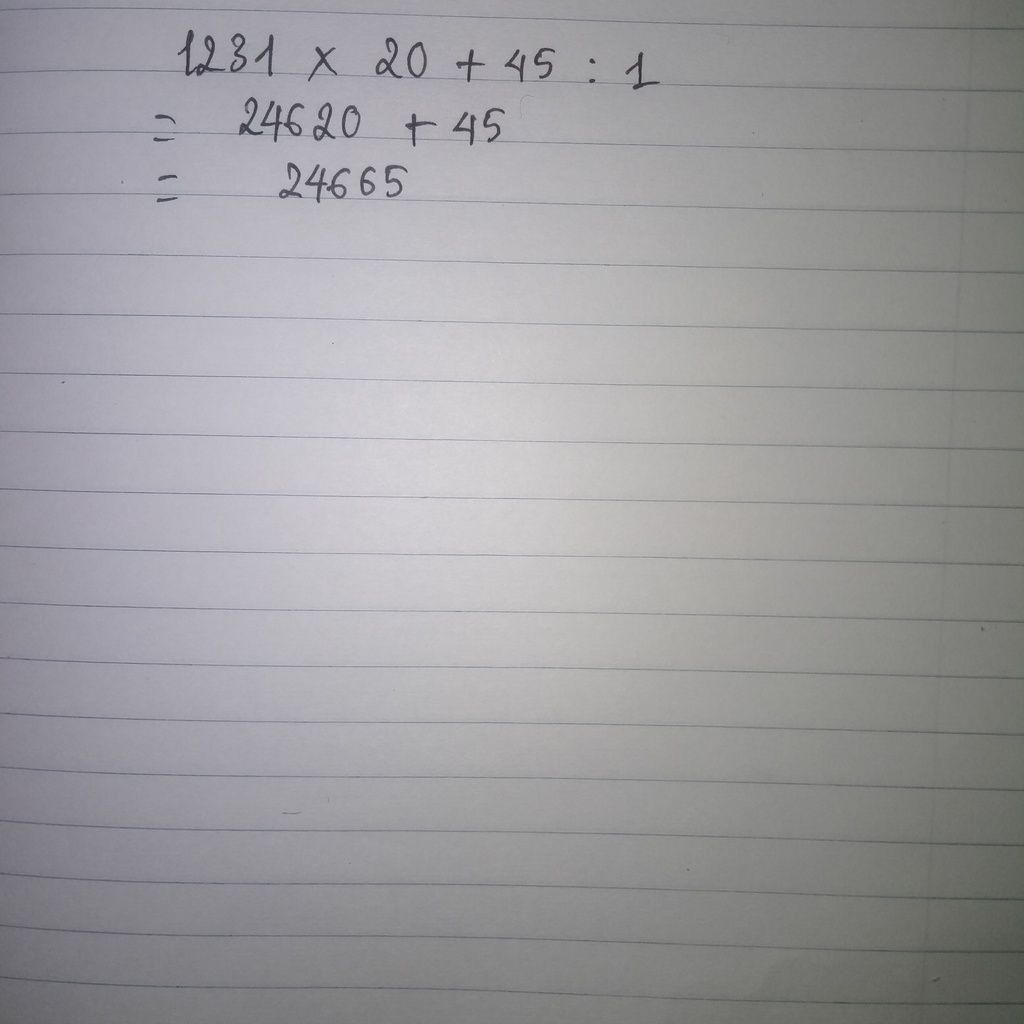 1231 × 20 + 45 : 1
= 24620 + 45
= 24665